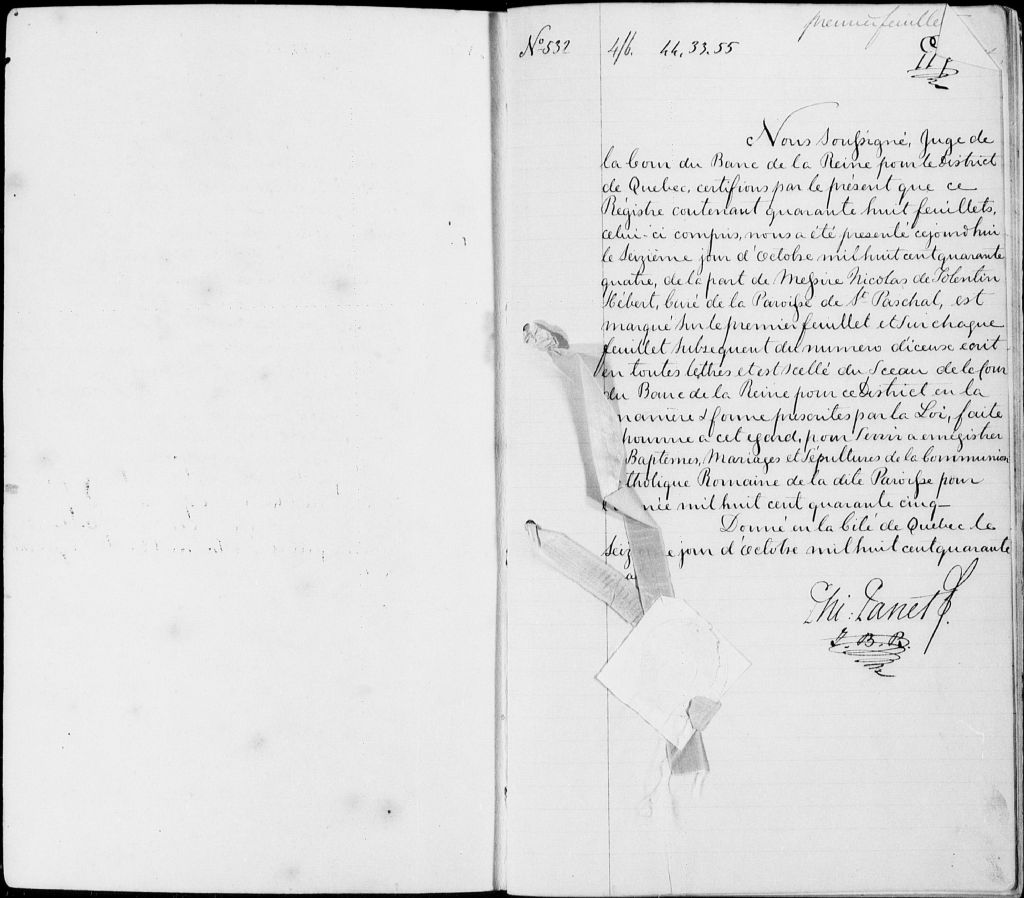 premier feuillet
No 532 4/6. 44.33.55
Nous soussigné, Juge de
la Cour du Banc de la Reine pour le District
de Quebec, certifions par le présent que ce
Régistre contenant quarante huit feuillets,
celui-ci compris, nous a été presenté cejourdhui
le Seizième jour d'Octobre mil huit cent quarante
quatre, de la part de Messire Nicolas de Tolentin
Hébert, Curé de la Paroisse de St Paschal, est
marqué sur le premier feuillet et sur chaque
feuillet subsequent du numero d'iceux écrit
en toutes lettres et est scellé du Sceau de la Cour
du Banc de la Reine pour ce District en la
manière & forme prescrites par la Loi, faite
homme a cet egard, pour servir a enrégistrer
Baptêmes, Mariages et Sépultures de la Communion
tholique Romaine de la dite Paroisse pour
née mil huit cent quarante cinq—
Donné en la Cité de Quebec le
Seiz e jour d'Octobre mil huit cent quarante
Phi. Panet
J. B. R.